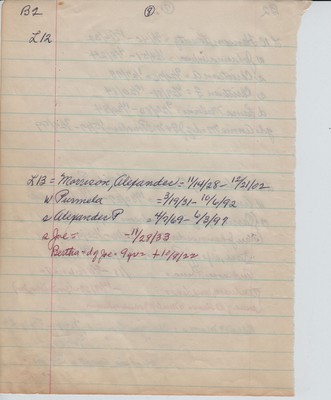 B2
L12
L13 = Morrison, Alexander = 11/14/28 - 12/21/02
w Permela = 3/19/31 - 10/6/92
s Alexander P = 4/9/69 - 6/3/99
s Joe = - 11/29/33
Bertha = d of Joe = 9 yrs + 10/8/22